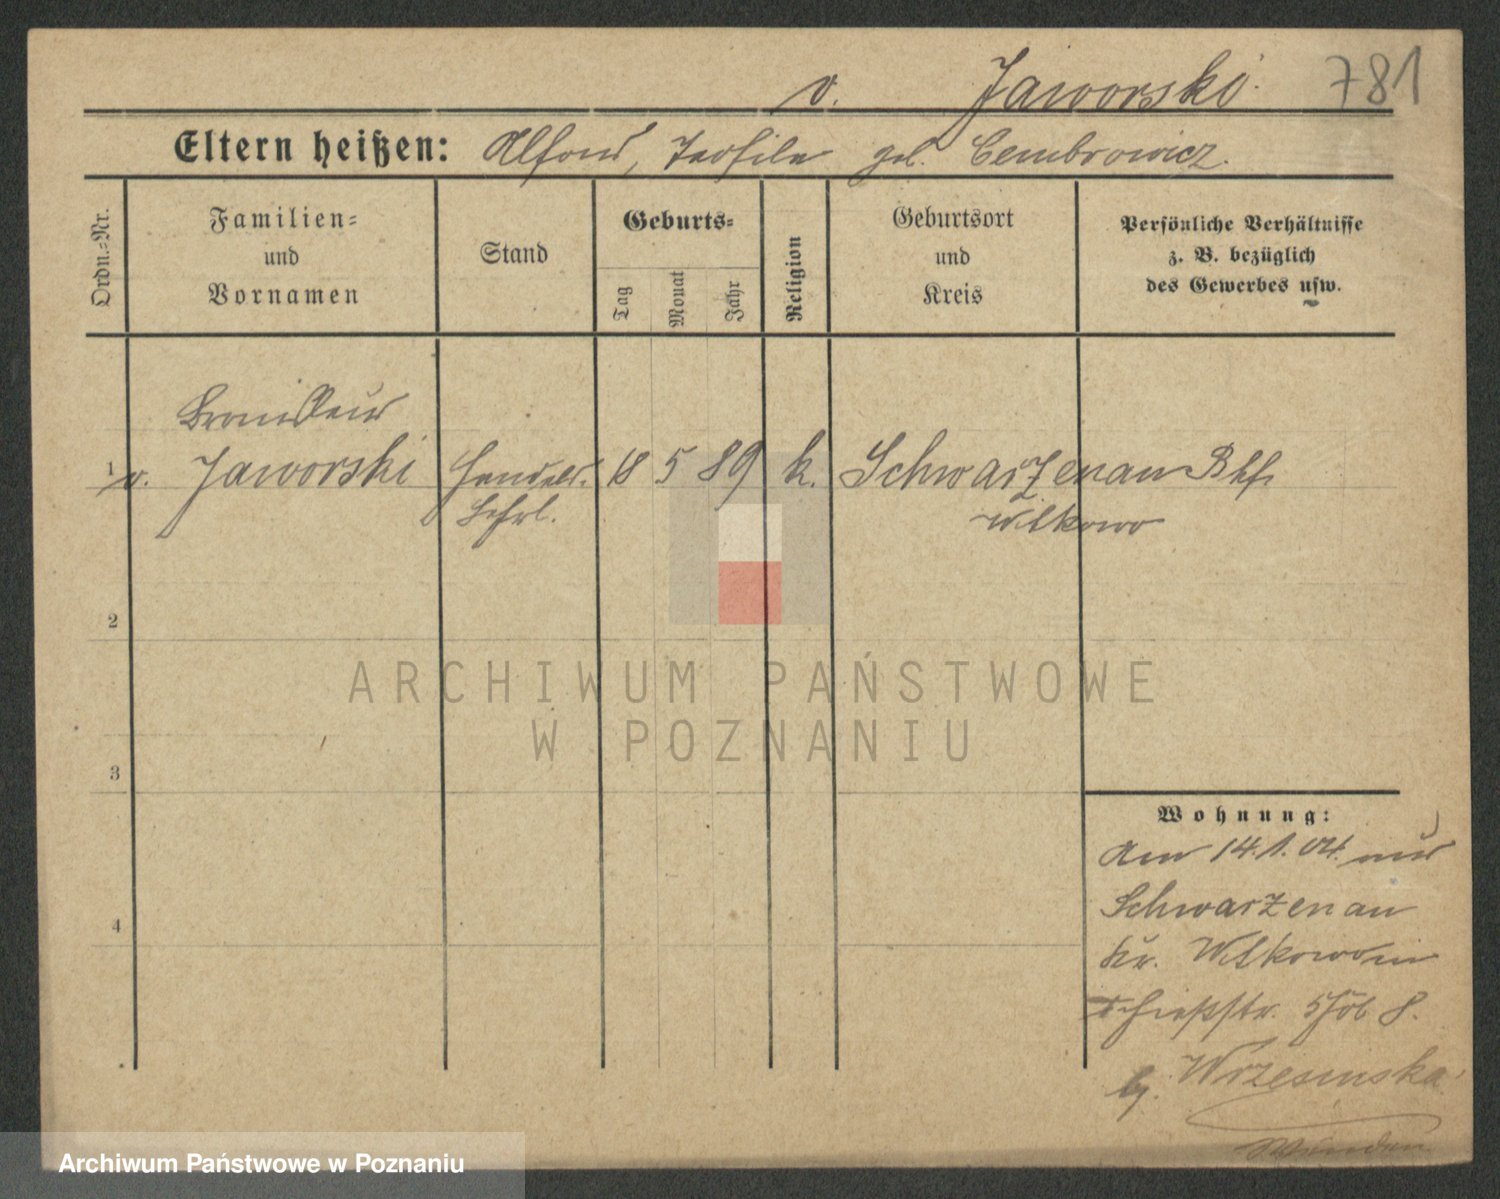 v. Jaworski 781
Eltern heißen: Alfons, Teofila geb. Cembrowicz.
Ordn.=Nr.
Familien=
und
Vornamen
Stand
Geburts=
Tag
Monat
Jahr
Religion
Geburtsort
und
Kreis
Persönliche Verhältnisse
z. B. bezüglich
des Gewerbes usw.
Bronislaus
1 v. Jaworski Handels- 18 5 89 k. Schwarzenau Bhf
Lehrl. Witkowo
2
3
4
Wohnung:
Am 14.1.04. aus
Schwarzenau
Kr. Witkowo in
Schießstr. 5
b/. Wrzesinska
ARCHIWUM PAŃSTWOWE
W POZNANIU
Archiwum Państwowe w Poznaniu